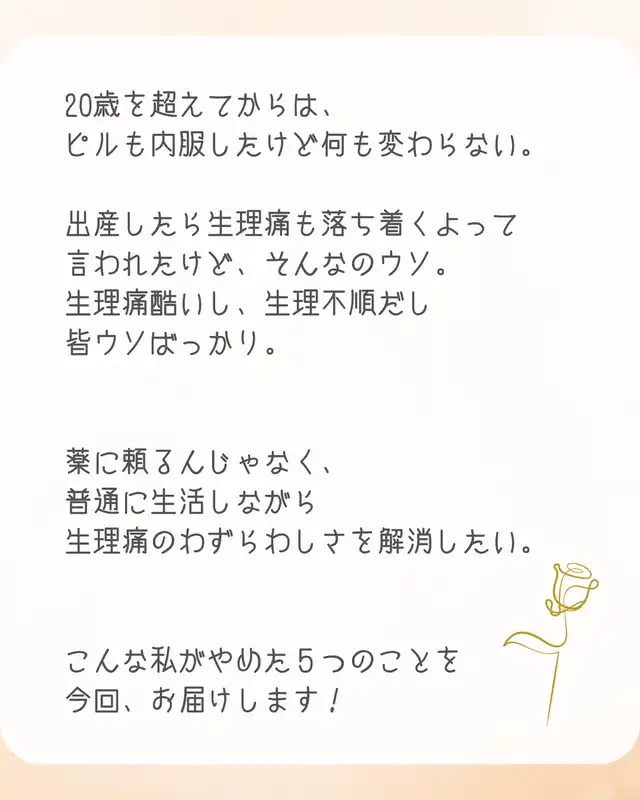 20歳を超えてからは、
ピルも内服したけど何も変わらない。
出産したら生理痛も落ち着くよって
言われたけど、そんなのウソ。
生理痛酷いし、生理不順だし
皆ウソばっかり。
薬に頼るんじゃなく、
普通に生活しながら
生理痛のわずらわしさを解消したい。
こんな私がやめた５つのことを
今回、お届けします！